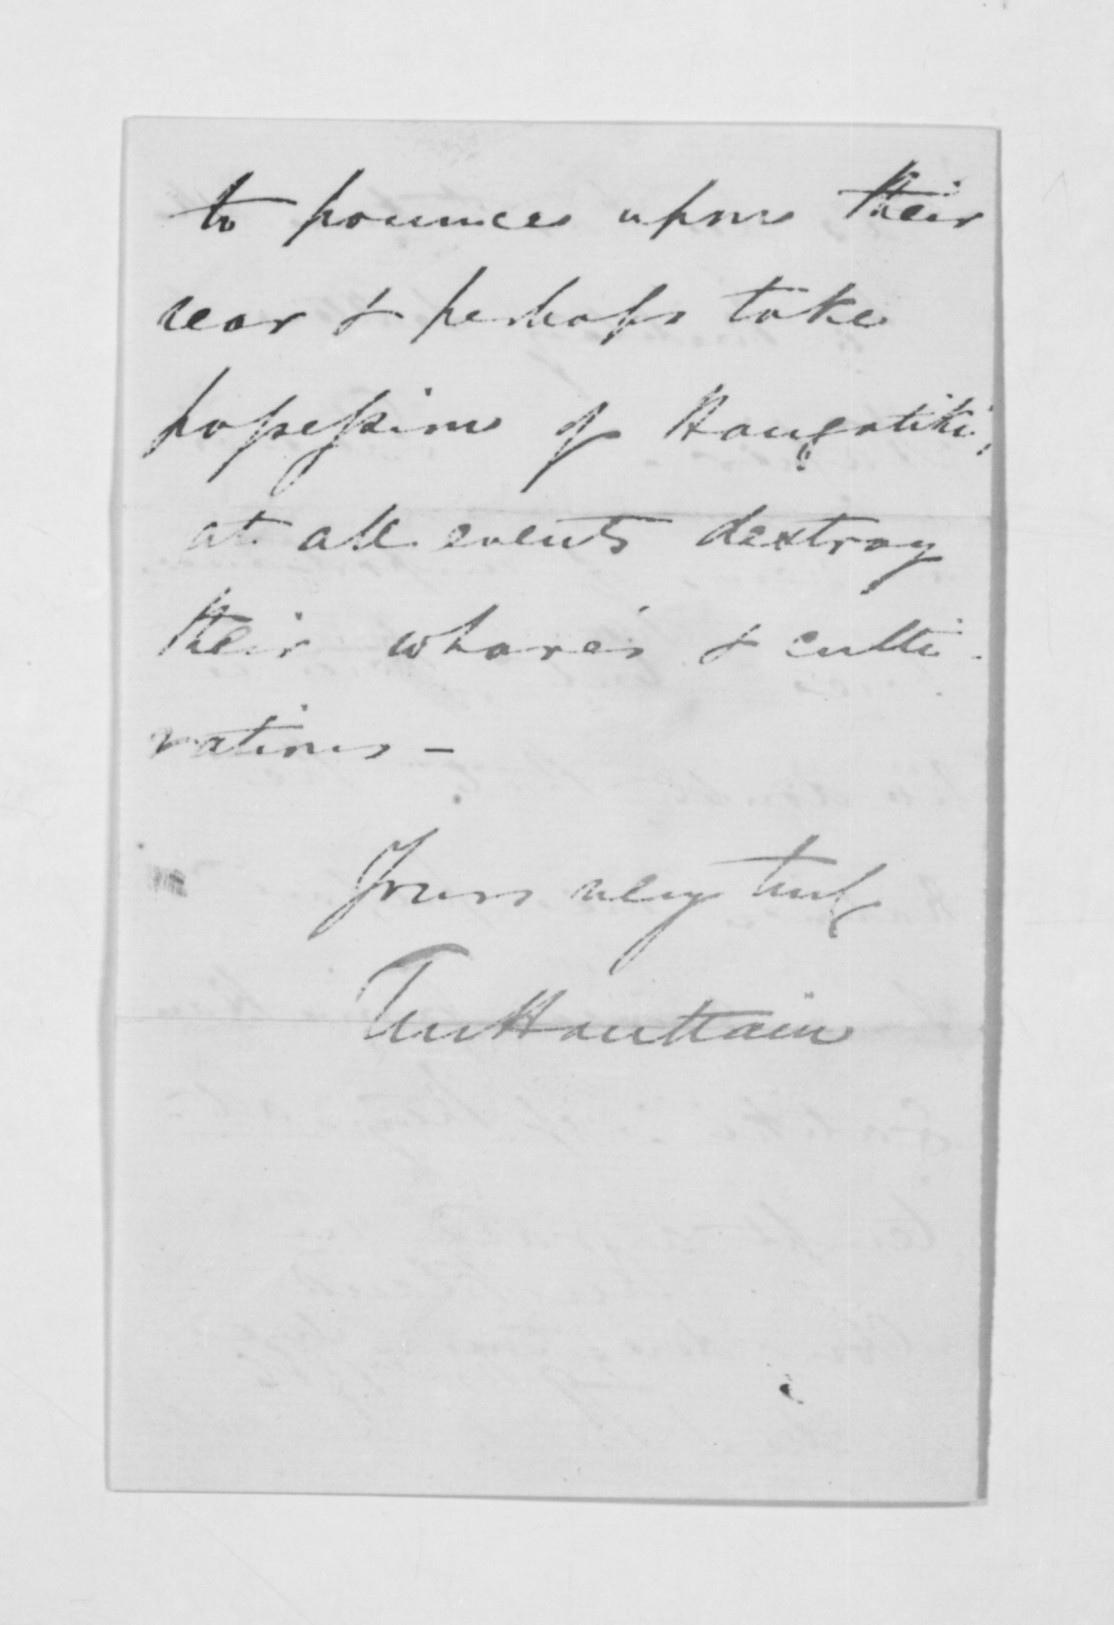 to pounce upon their
rear & perhaps take
possession of Haugatiki,
at all events destroy
their wharé's & culti-
vations -
Yours very truly
Haultain